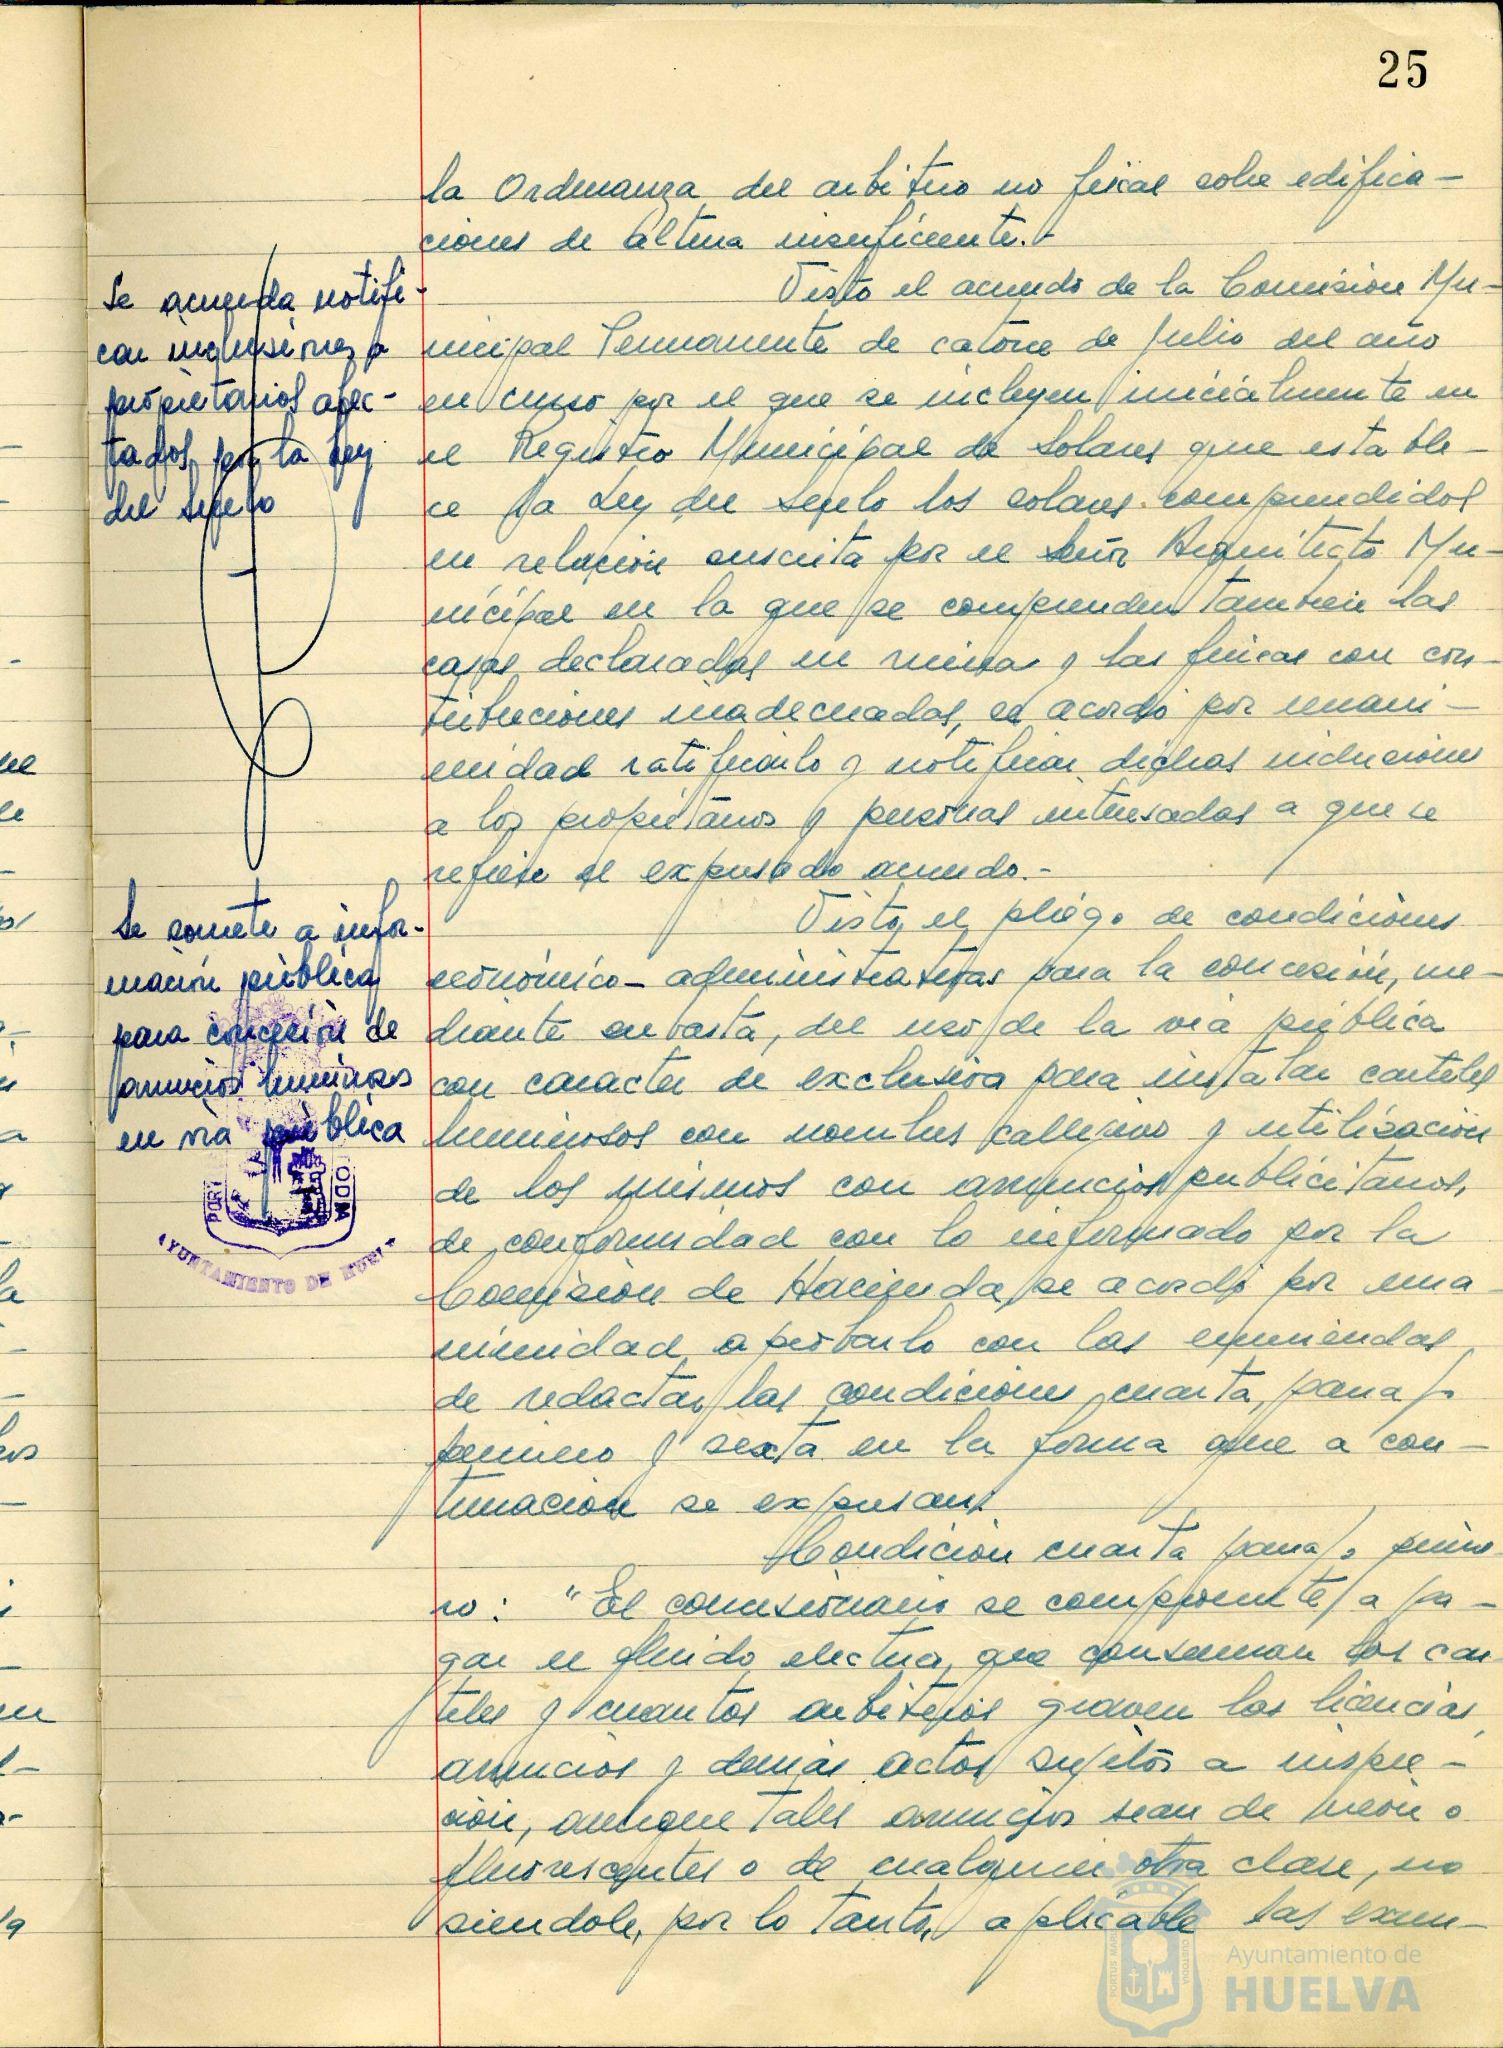 25
la Ordenanza del arbitrio no fiscal sobre edifica-
ciones de altura insuficiente.-
Se acuerda notifi-
car inclusiones a
propietarios afec-
tados por la Ley
del Suelo
Visto el acuerdo de la Comisión Mu-
nicipal Permanente de catorce de Julio del año
en curso por el que se incluyen inicialmente en
el Registro Municipal de Solares que estable-
ce la Ley del Suelo los solares comprendidos
en relación suscrita por el Señor Arquitecto Mu-
nicipal en la que se comprenden también las
casas declaradas en ruinas y las fincas con cons-
tribuciones inadecuadas, se acordó por unani-
midad ratificarlo y notificar dichas inclusiones
a los propietarios y personas interesadas a que se
refiere el expresado acuerdo.-
Se somete a infor-
mación pública
para concesión de
anuncios luminosos
en vía pública
Visto el pliego de condiciones
económico-administrativas para la concesión, me-
diante subasta, del uso de la vía pública
con caracter de exclusiva para instalar carteles
luminosos con nombres callejero y utilización
de los mismos con anuncios publicitarios,
de conformidad con lo informado por la
Comisión de Hacienda, se acordó por una-
nimidad aprobarlo con las enmiendas
de redactar las condiciones cuarta, parrafo
primero y sexta en la forma que a con-
tinuación se expresan:
Condición cuarta parrafo prime-
ro: "El concesionario se compromete a pa-
gar el fluido electrico que consuman los car-
teles y cuantos arbitrios graven las licencias,
anuncios y demás actos sujetos a inspec-
ción, aunque tales anuncios sean de neon o
fluorescentes o de cualquier otra clase, no
siendole, por lo tanto, aplicable las exen-
AYUNTAMIENTO DE HUELVA
Ayuntamiento de
HUELVA